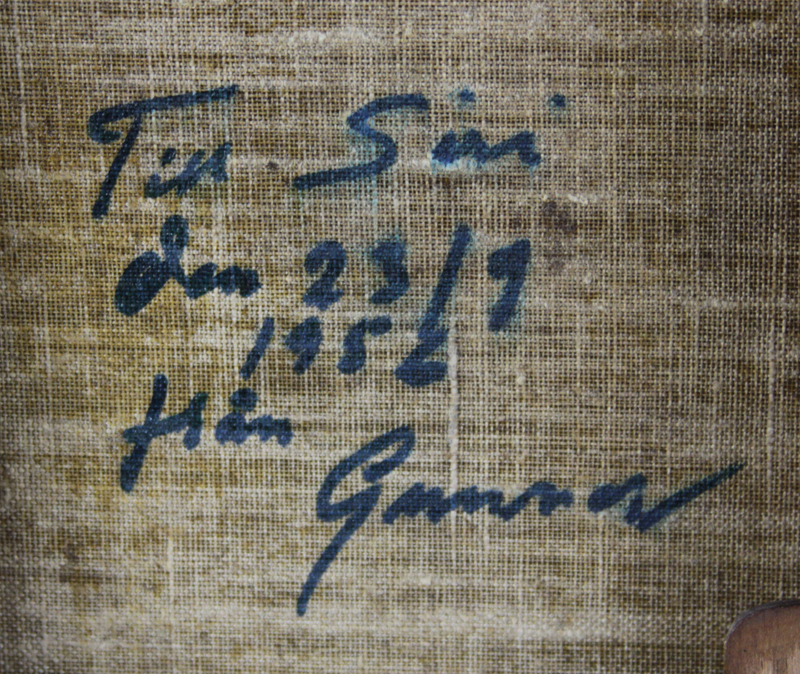 Till Siri
den 23/9
1956
från
Gunnar